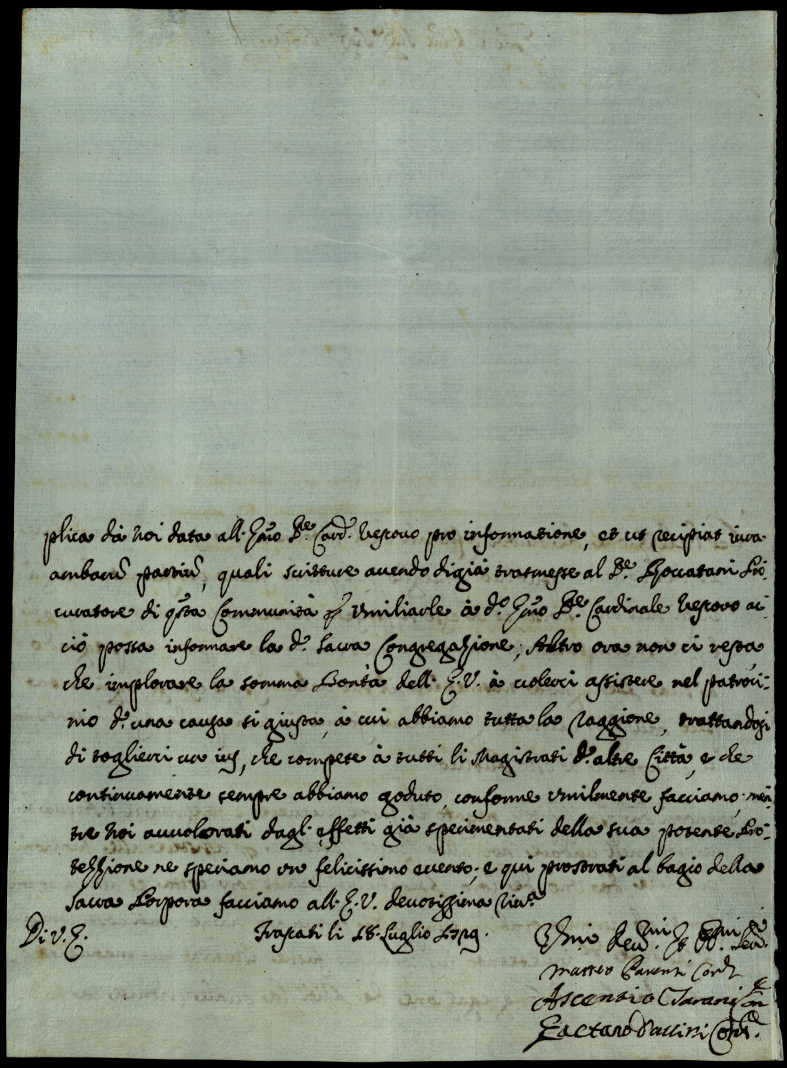 plica dà noi data all. Em̃o Sre. Card. Vescovo pro informatione, et ut recipiat iura
ambarũ partiũ, quali scritture avendo digià trasmesse al Sre. Boccatani Pro:
curatore di qsta Comunità p umiliarle à do. Em̃o Sre. Cardinale Vescovo ac:
ciò possa informare la da. Sacra Congregazione; Altro ora non ci resta
che implorare la somma Bontà dell. E.V. à volerci assistere nel patroci:
nio d'una causa si giusta, à cui abbiamo tutta la raggione, trattandosi
di toglierci un ius, che compete à tutti li Magistrati d'altre Città, e che
continuamente sempre abbiamo goduto, conforme umilmente facciamo, men
tre noi avvalorati dagl. effetti già sperimentati della sua potente Pro:
tezzione ne speriamo un felicissimo evento; e qui prostrati al bagio della
Sacra Porpora facciamo all. E.V. devotissima riva.
Di V.E. Frascati li 18. Luglio 1729.
Umi Devmi
Matteo Parenti Conf
Ascensio
Gaetano Conf.